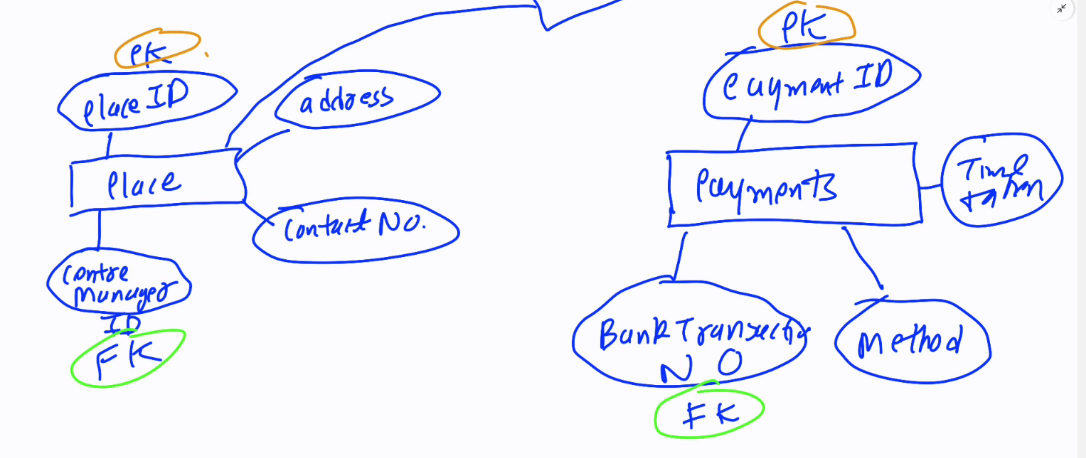 PK
Place ID
address
Place
Contact No.
Centre
Manager
ID
FK
PK
Payment ID
Payments
Time
taken
Bank Transection
NO
FK
Method